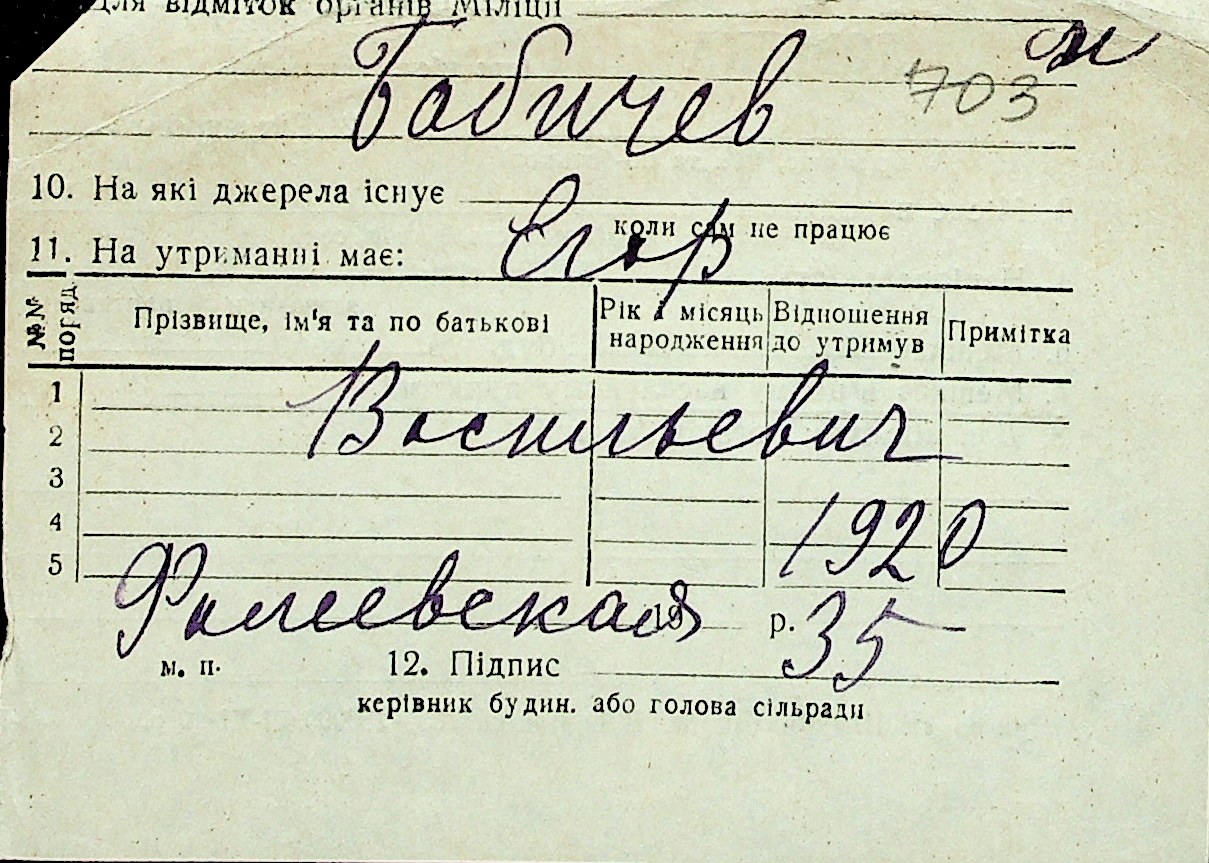 Для відміток органів Міліції
Бабичев
703
10. На які джерела існує
коли сам не працює
11. На утриманні має:
Егор
№№ поряд.
Прізвище, ім'я та по батькові
Рік і місяць народження
Відношення до утримув
Примітка
1
Васильевич
2
3
4
1920
5
35
19 р.
м. п.
12. Підпис
керівник будин. або голова сільради